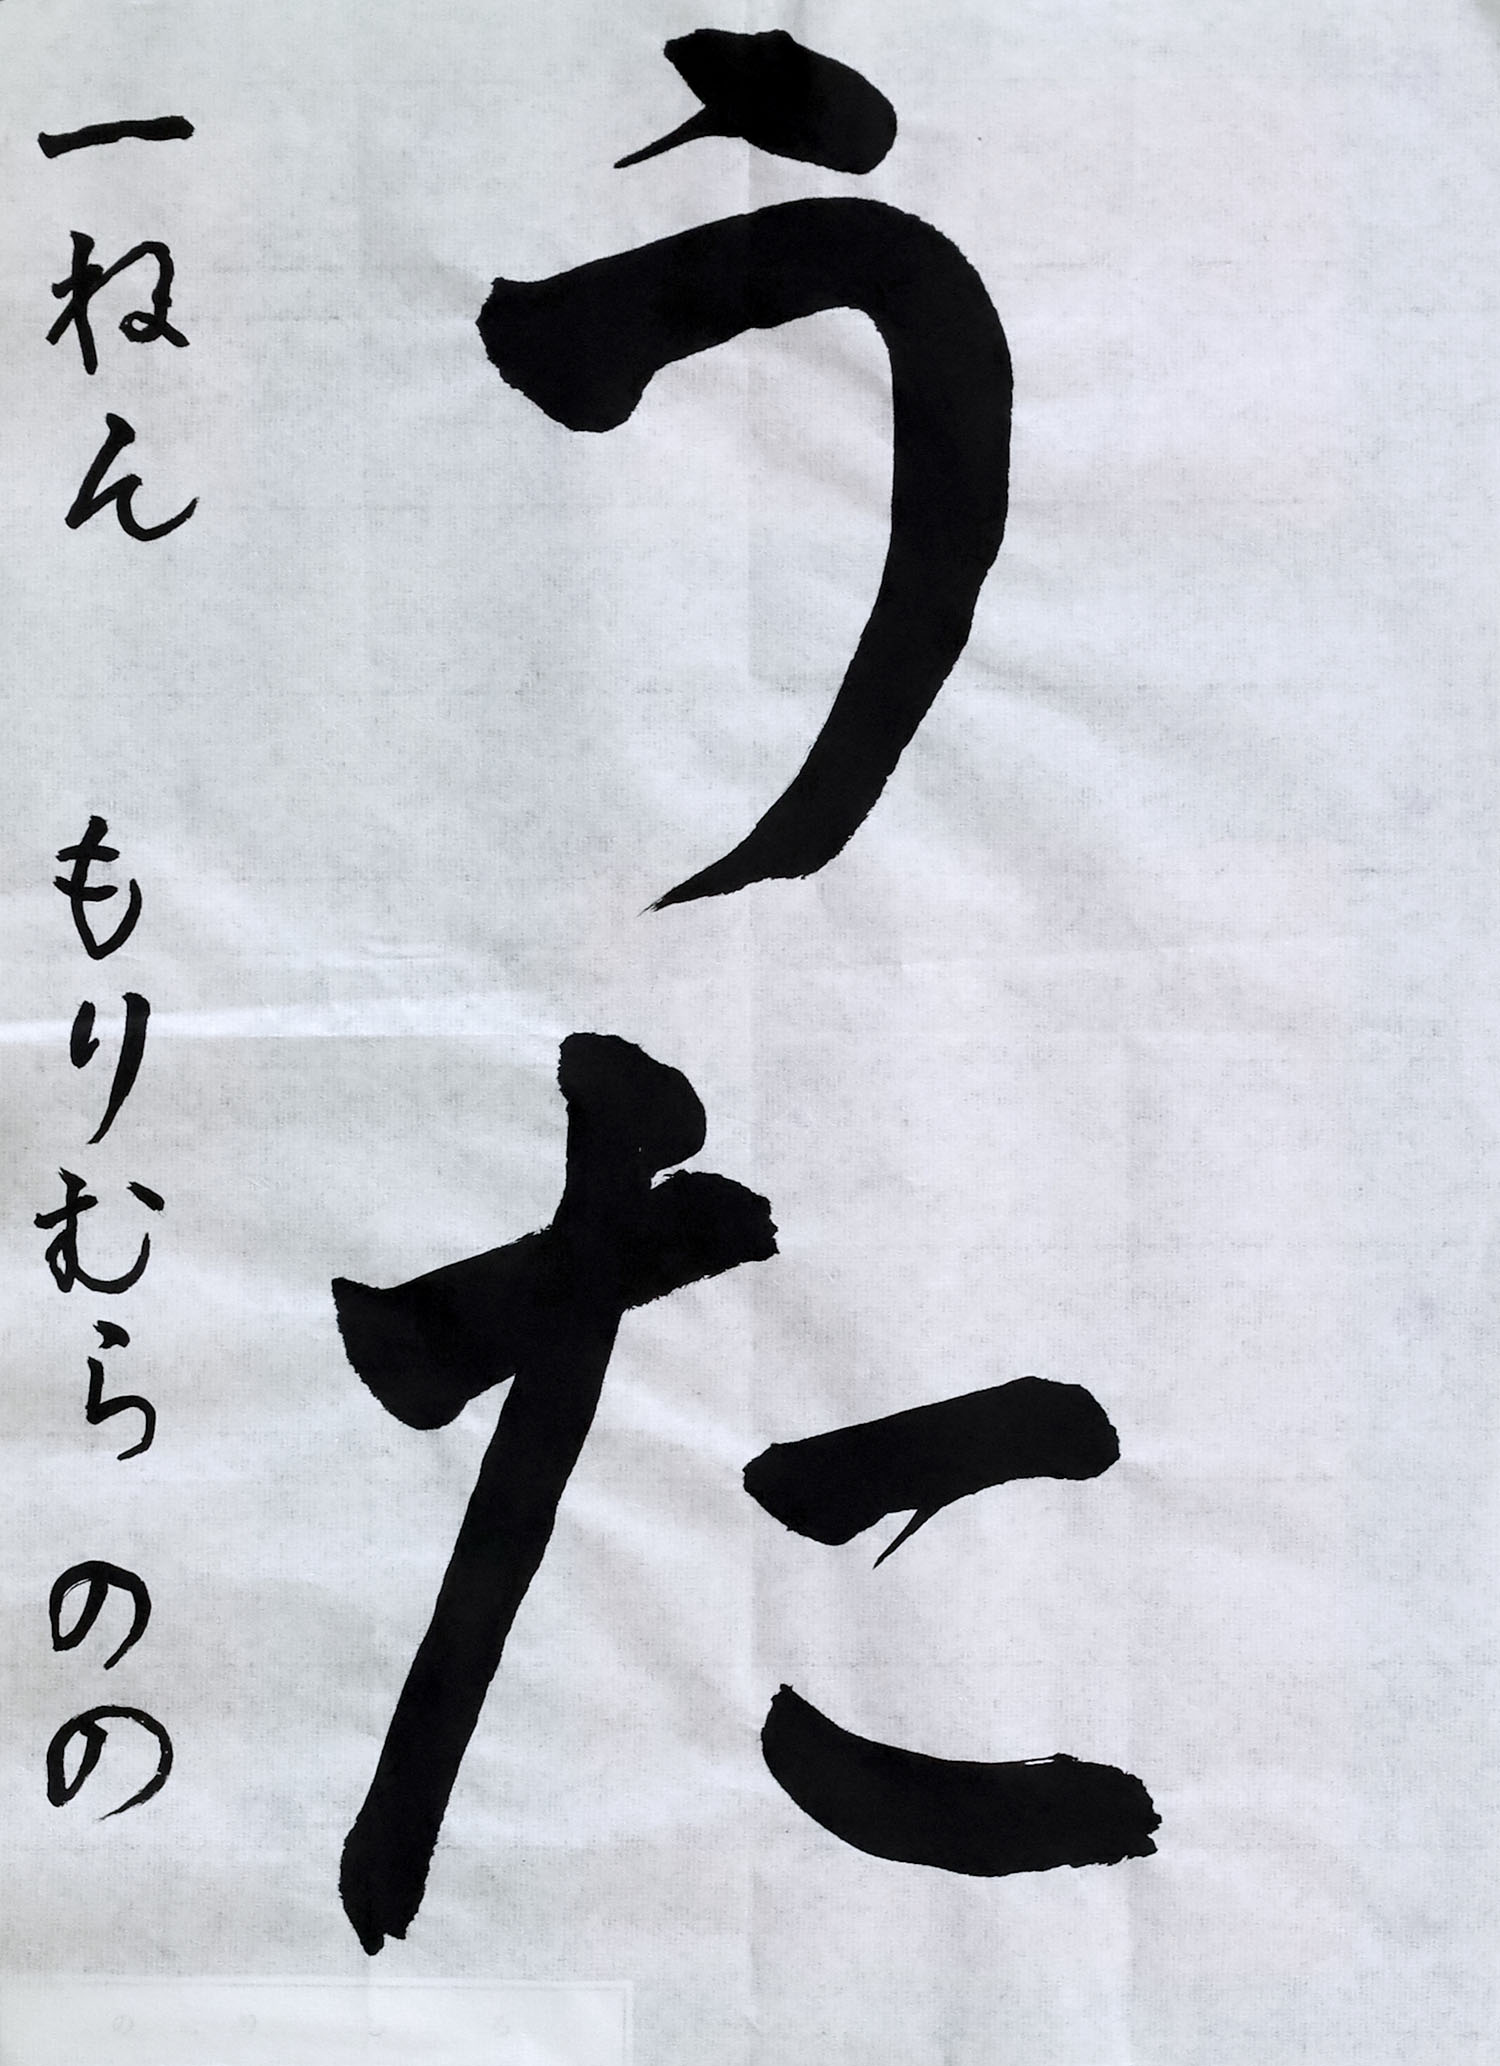 うた
一ねん もりむら のの